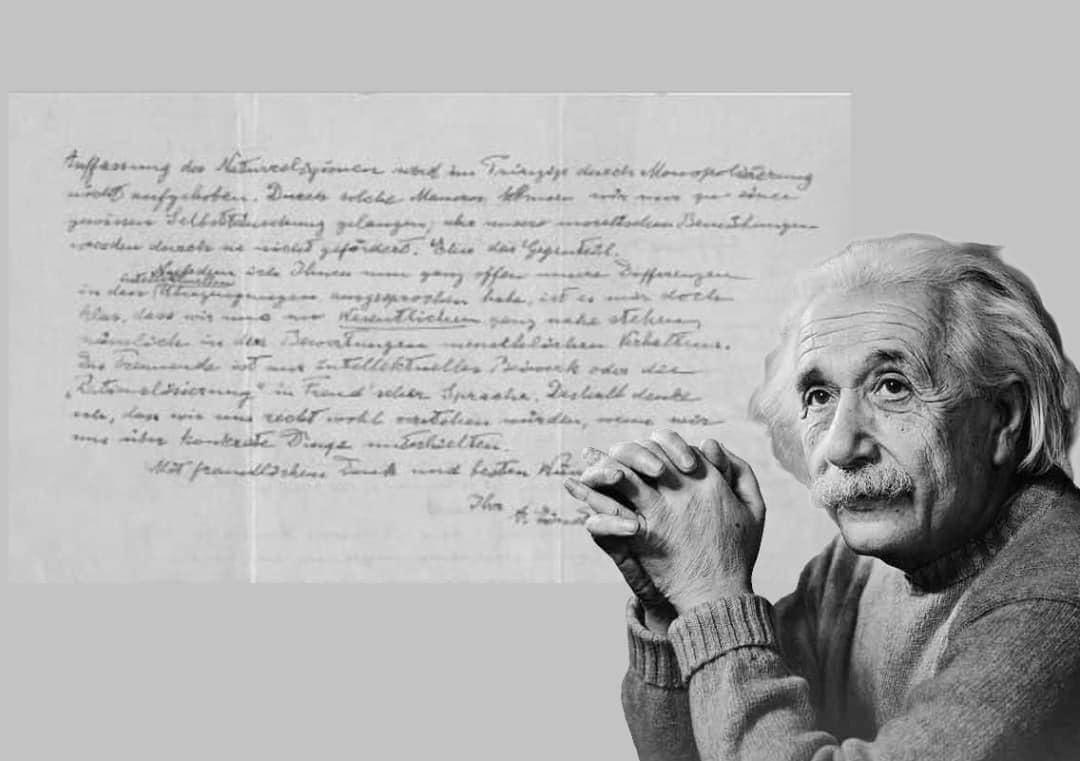 Auffassung der Naturreligionen wird im Prinzip durch Monopolisierung
nicht aufgehoben. Durch solche Mauern können wir nur zu einer
gewissen Selbsttäuschung gelangen; aber unsere moralischen Bemühungen
werden durch sie nicht gefördert. Eher das Gegenteil.
Nachdem ich Ihnen nun ganz offen unsere Differenzen
intellektuellen
in den Überzeugungen ausgesprochen habe, ist es mir doch
klar, dass wir uns im Wesentlichen ganz nahe stehen,
nämlich in den Bewertungen menschlichen Verhaltens.
Das Trennende ist nur intellektuelles Beiwerk oder die
„Rationalisierung" in Freud'scher Sprache. Deshalb denke
ich, dass wir uns recht wohl verstehen würden, wenn wir
uns über konkrete Dinge unterhielten.
Mit freundlichem Dank und besten
Ihr A.